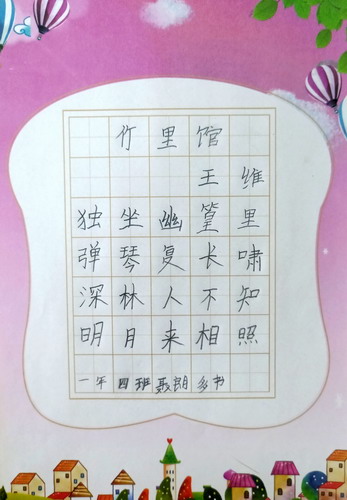 竹里馆
王维
独坐幽篁里
弹琴复长啸
深林人不知
明月来相照
一年四班聂朗 书